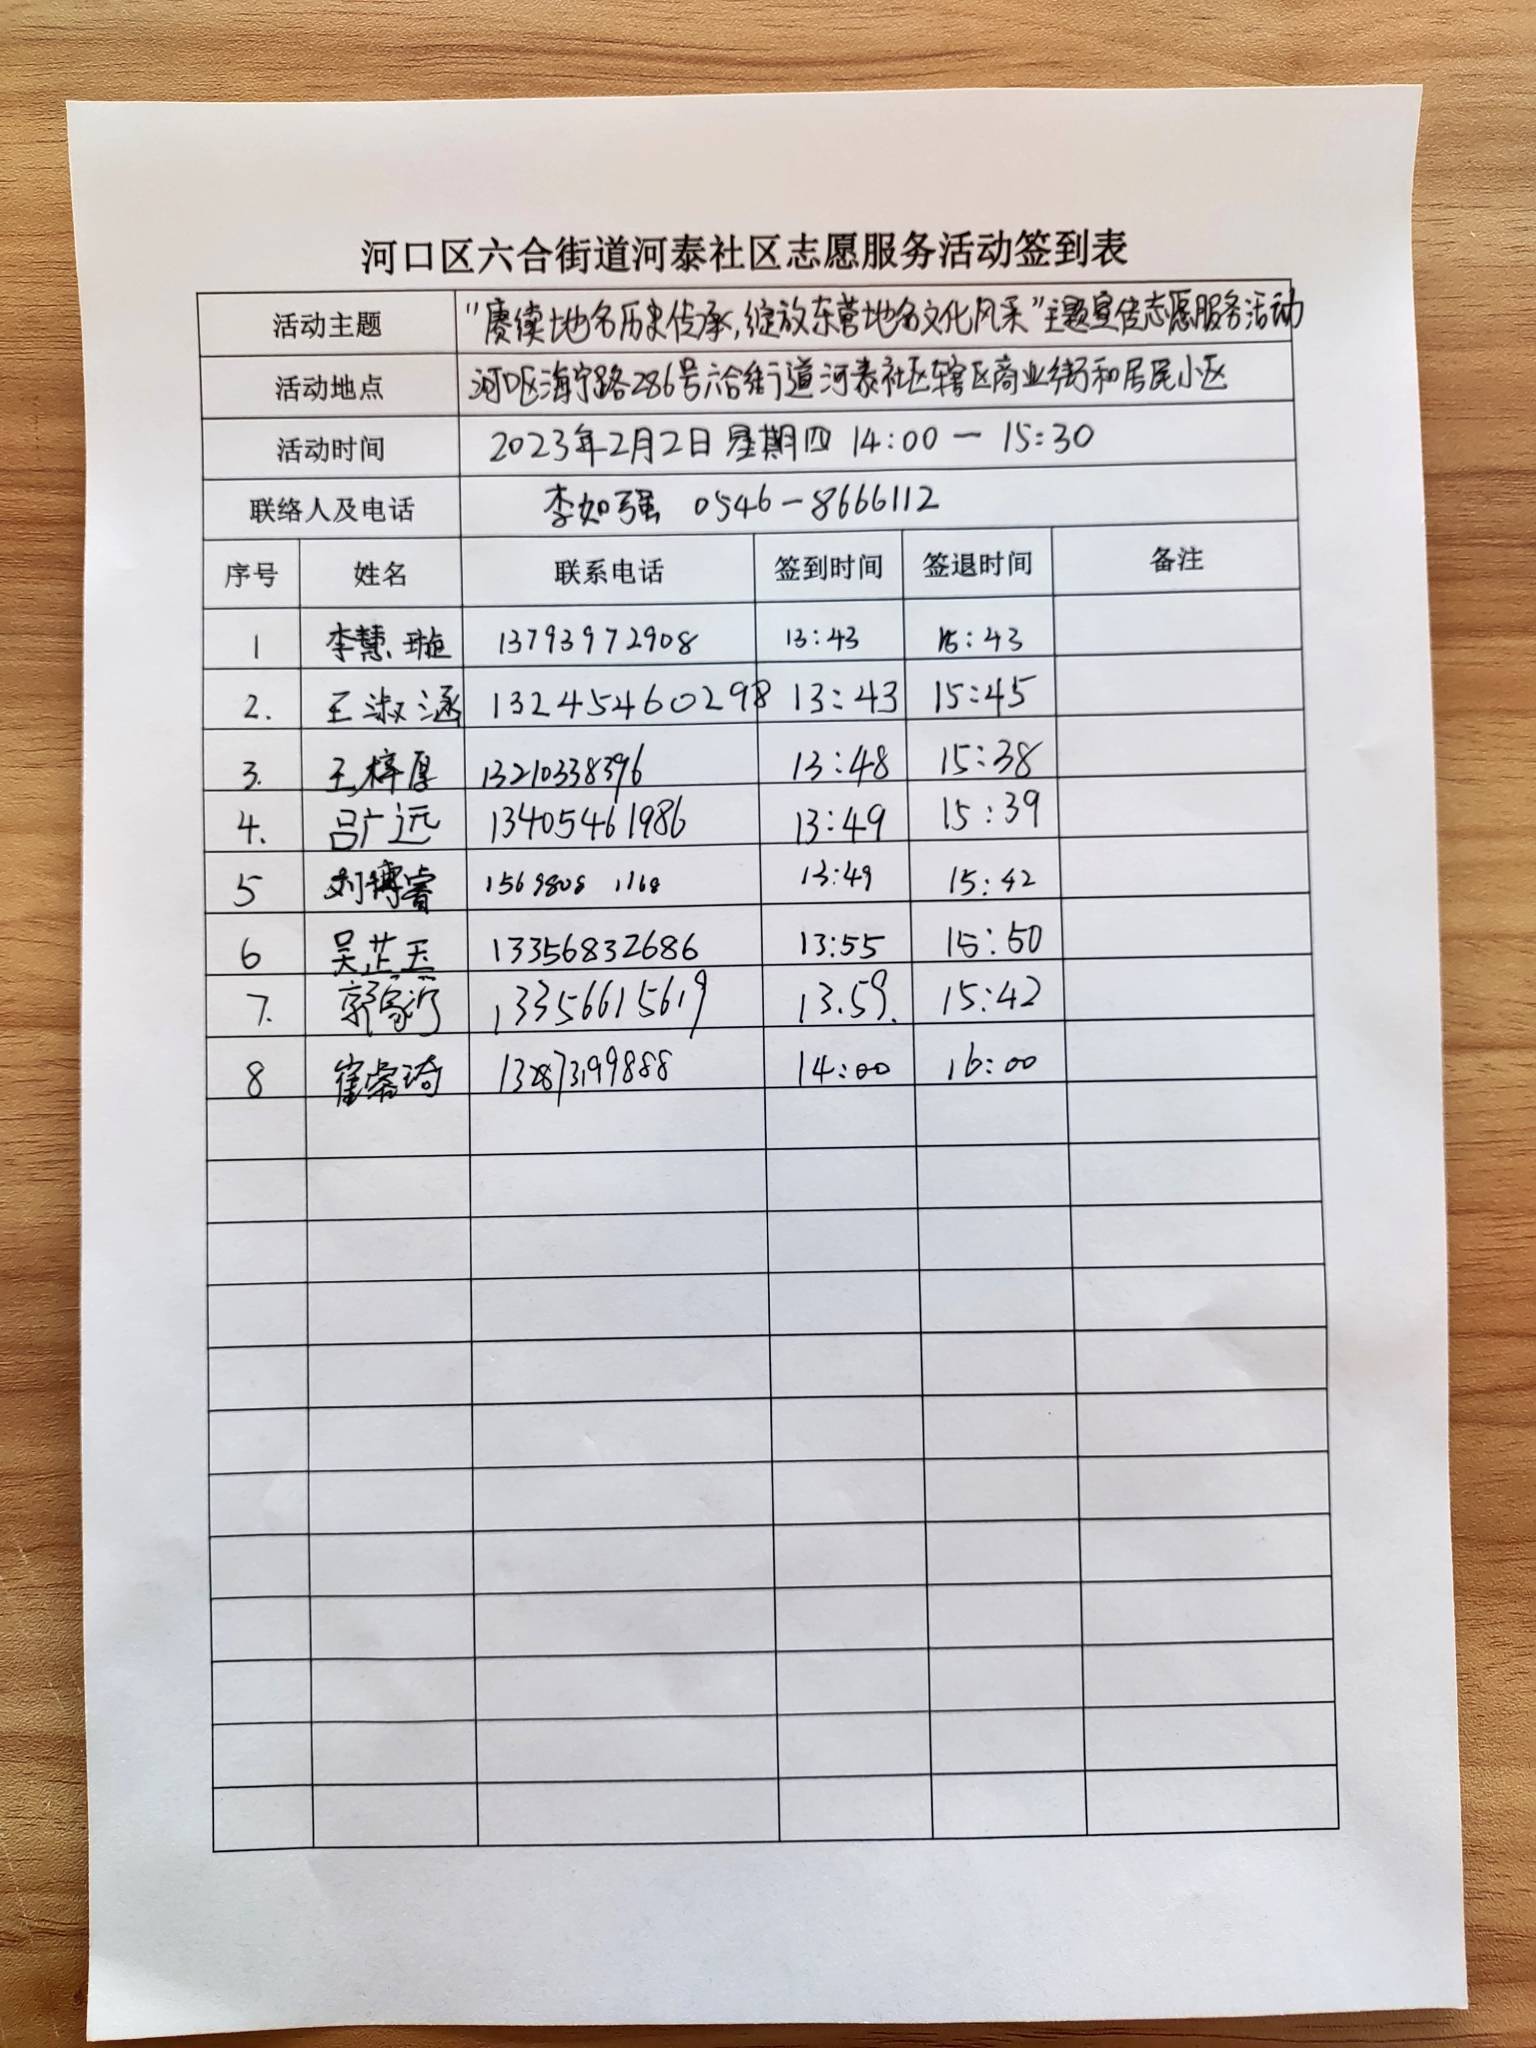 河口区六合街道河泰社区志愿服务活动签到表
活动主题 “赓续地名历史传承,绽放东营地名文化风采”主题宣传志愿服务活动
活动地点 河口区海宁路286号六合街道河泰社区辖区商业街和居民小区
活动时间 2023年2月2日 星期四 14:00 — 15:30
联络人及电话 李如强 0546-8666112
序号 姓名 联系电话 签到时间 签退时间 备注
1 李慧璇 13793972908 13:43 15:43
2. 王淑涵 13245460298 13:43 15:45
3. 王梓厚 13210338396 13:48 15:38
4. 吕广远 13405461986 13:49 15:39
5 刘博睿 1569808 1168 13:49 15:42
6 吴芷玉 13356832686 13:55 15:50
7. 郭家 13356615619 13.59. 15:42
8 崔睿琦 13287399888 14:00 16:00